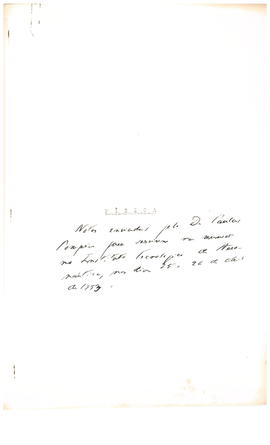 FÍSICA
Notas enviadas pelo Dr. Paulus
Pompeia para
no Instituto Tecnológico de Aero-
náutica, nos dias 25 . 26 de
de 1953.